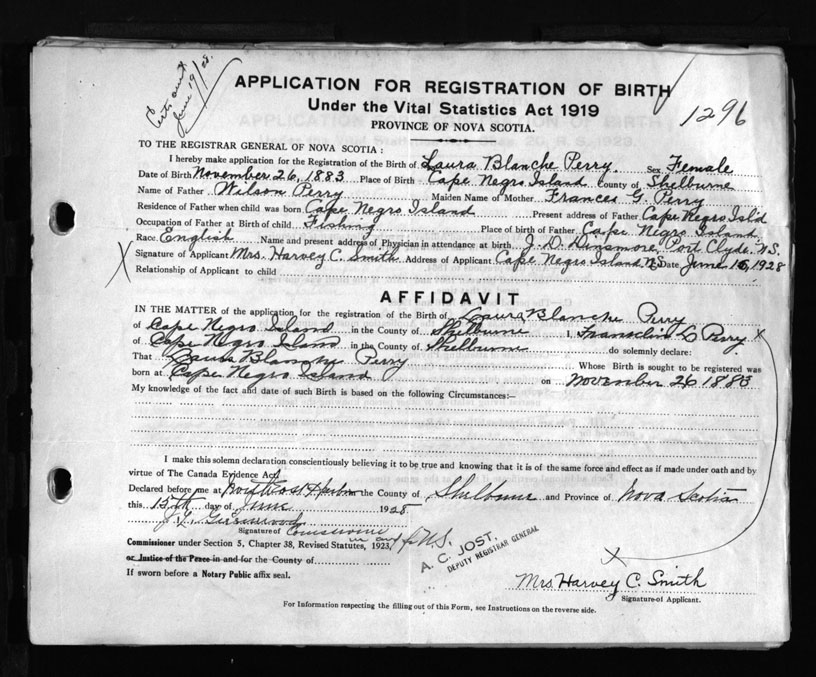 Certs sent
June 19/28.
APPLICATION FOR REGISTRATION OF BIRTH
1296
Under the Vital Statistics Act 1919
PROVINCE OF NOVA SCOTIA.
TO THE REGISTRAR GENERAL OF NOVA SCOTIA:
I hereby make application for the Registration of the Birth of Laura Blanche Perry. Sex Female
Date of Birth November 26, 1883 Place of Birth Cape Negro Island County of Shelburne
Name of Father Wilson Perry Maiden Name of Mother Frances G. Perry
Residence of Father when child was born Cape Negro Island Present address of Father Cape Negro Isl'd
Occupation of Father at Birth of child Fishing Place of birth of Father Cape Negro Island
Race English Name and present address of Physician in attendance at birth J. D. Dinsmore, Port Clyde. N.S.
X Signature of Applicant Mrs. Harvey C. Smith Address of Applicant Cape Negro Island N.S Date June 15, 1928
Relationship of Applicant to child
AFFIDAVIT
IN THE MATTER of the application for the registration of the Birth of Laura Blanche Perry
of Cape Negro Island in the County of Shelburne I, Franklin C Perry x
of Cape Negro Island in the County of Shelburne do solemnly declare:
That Laura Blanche Perry Whose Birth is sought to be registered was
born at Cape Negro Island on November 26 1883
My knowledge of the fact and date of such Birth is based on the following Circumstances:—
I make this solemn declaration conscientiously believing it to be true and knowing that it is of the same force and effect as if made under oath and by
virtue of The Canada Evidence Act
Declared before me at the County of Shelburne and Province of Nova Scotia
this 15th day of June 1928
Signature of
Commissioner under Section 5, Chapter 38, Revised Statutes, 1923,
or Justice of the Peace in and for the County of
If sworn before a Notary Public affix seal.
A. C. JOST,
DEPUTY REGISTRAR GENERAL
X
Mrs. Harvey C. Smith
Signature of Applicant.
For Information respecting the filling out of this Form, see Instructions on the reverse side.